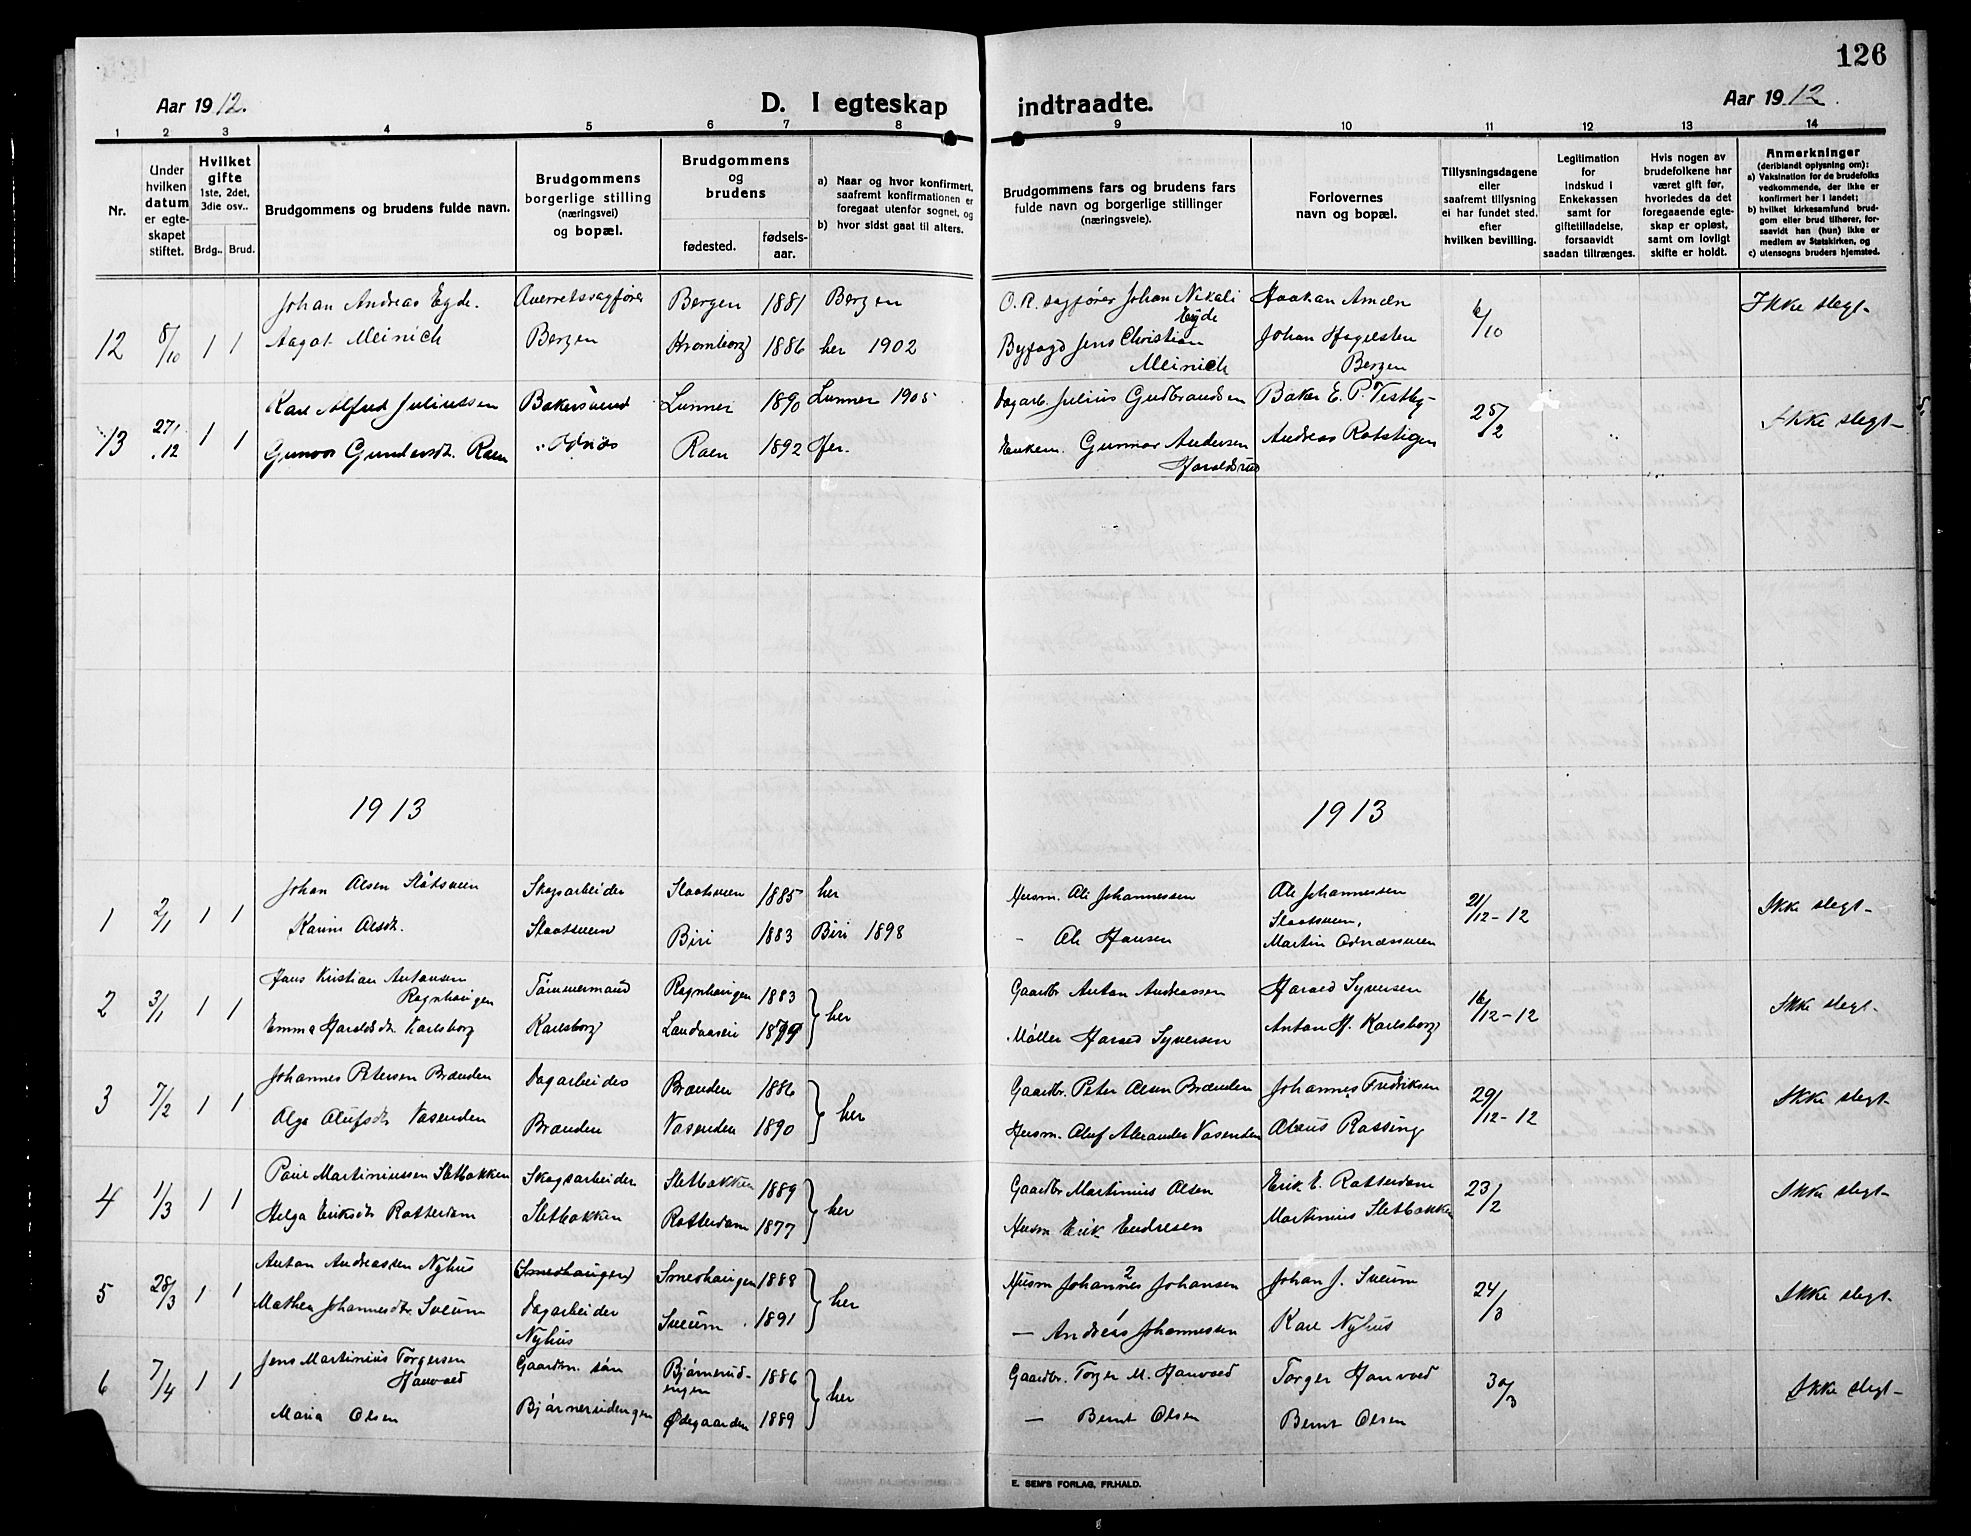 126
Aar 1912.
D. I egteskap
indtraadte.
Aar 1912.
1 2 3 4 5 6 7 8 9 10 11 12 13 14
Nr.
Under hvilken datum er egte- skapet stiftet.
Hvilket gifte
1ste, 2det, 3die osv..
Brdg.. Brud.
Brudgommens og brudens fulde navn.
Brudgommens borgerlige stilling (næringsvei) og bopæl.
Brudgommens og brudens
fødested.
fødsels- aar.
a) Naar og hvor konfirmert, saafremt konfirmationen er foregaat utenfor sognet, og
b) hvor sidst gaat til alters.
Brudgommens fars og brudens fars fulde navn og borgerlige stillinger (næringsveie).
Forlovernes navn og bopæl.
Tillysningsdagene eller saafremt tillysning ei har fundet sted. efter hvilken bevilling.
Legitimation for indskud i Enkekassen samt for giftetilladelse, forsaavidt saadan tiltrænges.
Hvis nogen av brudefolkene har været gift før, hvorledes da det foregaaende egte- skap er opløst, samt om lovligt skifte er holdt.
Anmerkninger
(deriblandt oplysning om):
a) Vaksination for de brudefolks vedkommende, der ikke er konfirmert her i landet;
b) hvilket kirkesamfund brud- gom eller brud tilhører, for- saavidt han (hun) ikke er medlem av Statskirken, og
c) utensogns bruders hjemsted.
Johan Andreas Egde. Overretssagfører Bergen 1881 Bergen O. R. sagfører Johan Nikali Egde Haakan Amdn
12 8/10 1 1 Aagot Meinich Bergen Kromborg 1886 her 1902 Byfogd Jens Christian Meinich Johan Hagelsten Bergen 6/10 Ikke slegt-
Karl Alfred Juliussen Bakersvend Lunner 1890 Lunner 1905 Dagarb. Julius Gudbrandsen Baker E. P. Vestby
13 27/12 1 1 Gunvor Gundersdt. Raen Odnæs Raen 1892 Her. Gunnar Andersen Haraldsrud Andreas Rotstigen Ikke slegt-
1913
1913
Johan Olsen Slåtsveen Skogsarbeider Slaatsveen 1885 her Husm. Ole Johannessen Ole Johannessen Slaatsveen,
1 2/1 1 1 Karine Olsdt. Slaatsveen Biri 1883 Biri 1898 - Ole Hansen Martin Odnæsveen 21/12-12 Ikke slegt-
Hans Kristian Antonsen Rognhaugen Tømmermand Rognhaugen 1883 Gaardbr Anton Andreassen Harald Syversen
2 3/1 1 1 Emma Haraldsdt. Karlsborg Karlsborg Landaasen her Møller Harald Syversen Anton H. Karlsborg 16/12-12 Ikke slegt-
Johannes Petersen Brænden Dagarbeider Brænden 1886 Gaardbr. Peter Olsen Brænden Johannes Fredriksen
3 7/2 1 1 Olga Olufsdt. Vasenden Brænden Vasenden 1890 her Husm. Oluf Alexander Vasenden Olaus Rossing 29/12-12 Ikke slegt-
Paul Martiniussen Sletbakken Skogsarbeider Sletbakken 1889 Gaardbr Martinius Olsen Erik E. Rotterdam
4 1/3 1 1 Helga Eriksdt. Rotterdam Sletbakken Rotterdam 1877 her Husm Erik Endresen Martinius Sletbakken 23/2 Ikke slegt-
Anton Andreassen Nyhus (Smedhaugen) Smedhaugen 1888 Husm Johannes 2 Johansen Johan J. Sveum
5 28/3 1 1 Mathea Johannesdtr. Sveum Dagarbeider Nyhus Sveum 1891 her - Andreas 1 Johannessen Karl Nyhus 24/3 Ikke slegt-
Jens Martinius Torgersen Hanvold Gaardm. søn Bjørnerud- engen 1886 Gaardbr. Torger M. Hanvold Torger Hanvold
6 7/4 1 1 Maria Olsen Bjørnerudengen Ødegaarden 1889 her - Bernt Olsen Bernt Olsen 30/3 Ikke slegt-
E. SEM'S FORLAG, FR.HALD.